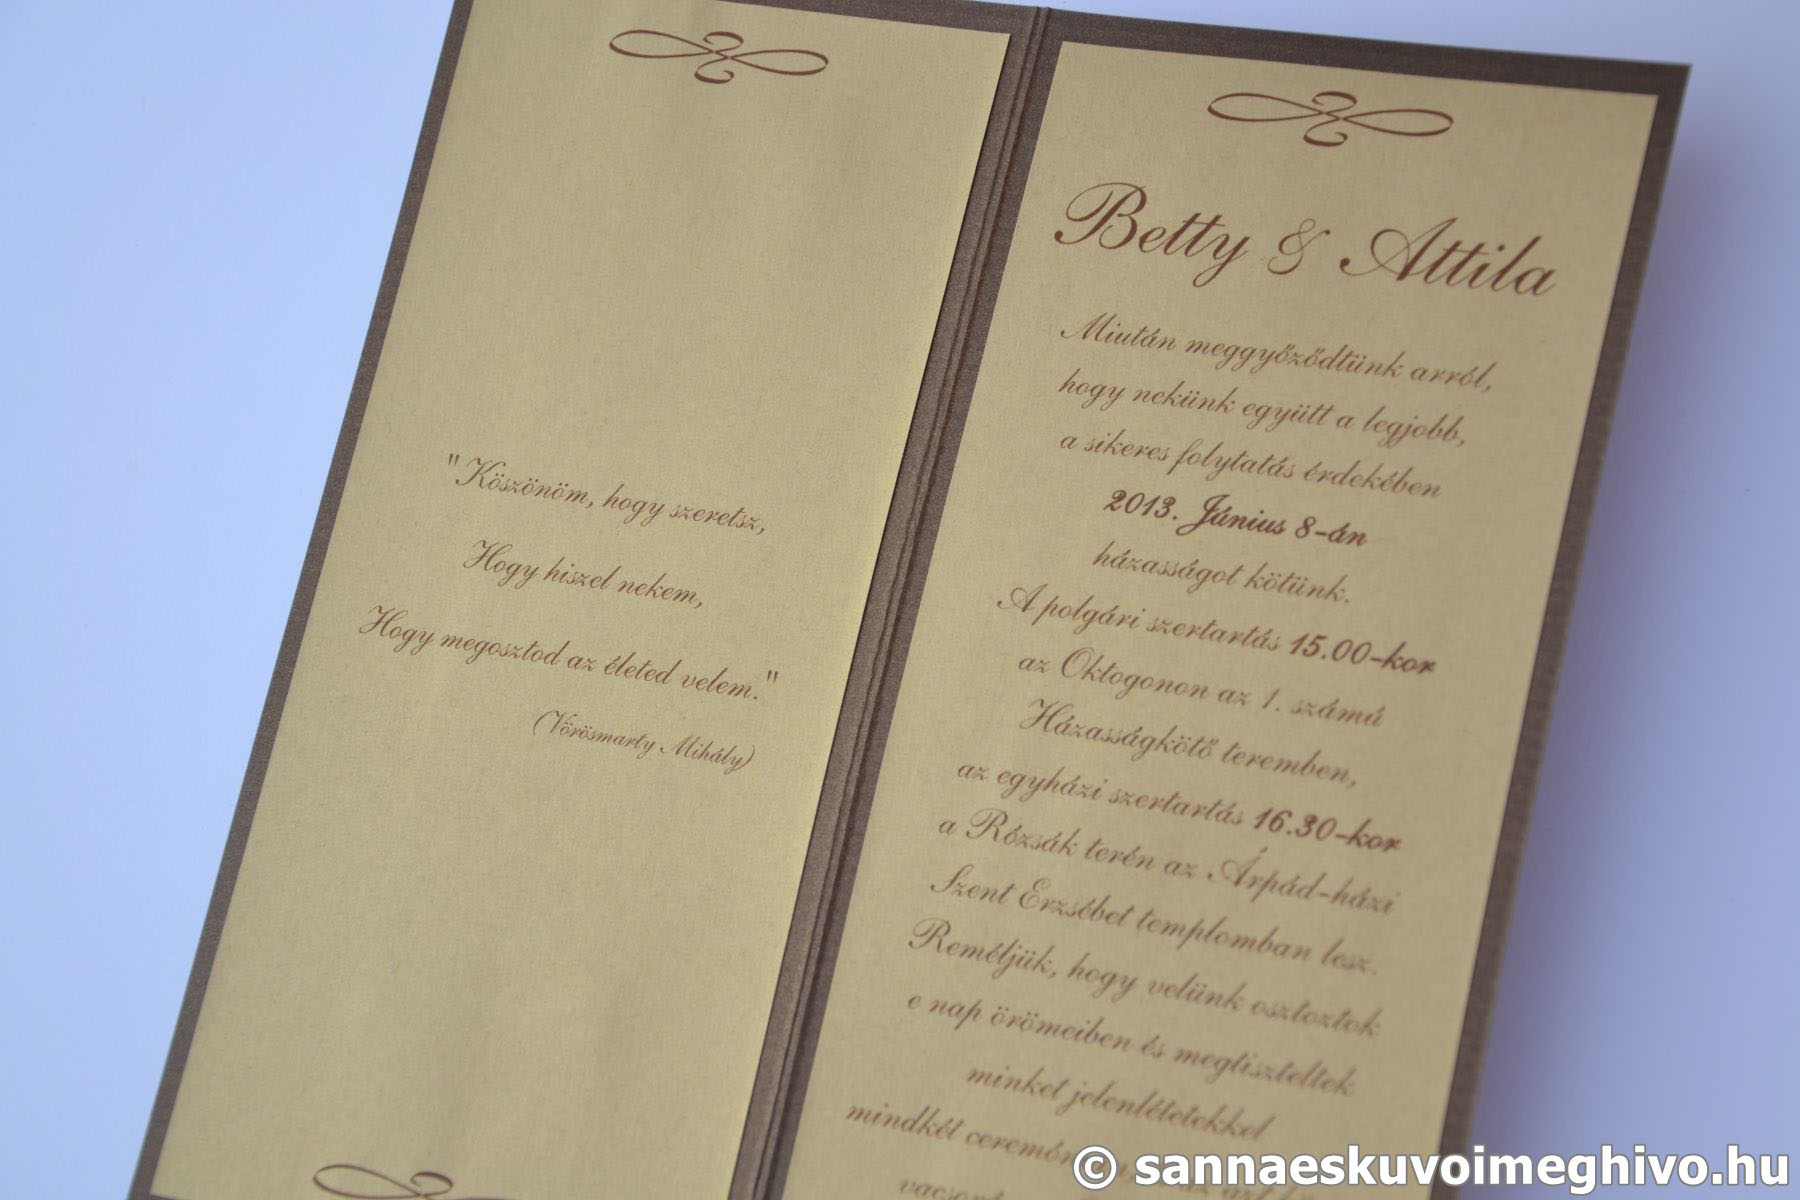 "Köszönöm, hogy szeretsz,
Hogy hiszel nekem,
Hogy megosztod az életed velem."
(Vörösmarty Mihály)
Betty & Attila
Miután meggyőződtünk arról,
hogy nekünk együtt a legjobb,
a sikeres folytatás érdekében
2013. Június 8-án
házasságot kötünk.
A polgári szertartás 15.00-kor
az Oktogonon az 1. számú
Házasságkötő teremben,
az egyházi szertartás 16.30-kor
a Rózsák terén az Árpád-házi
Szent Erzsébet templomban lesz.
Reméljük, hogy velünk osztoztok
e nap örömeiben és megtiszteltek
minket jelenlétetekkel
mindkét
© sannaeskuvoimeghivo.hu